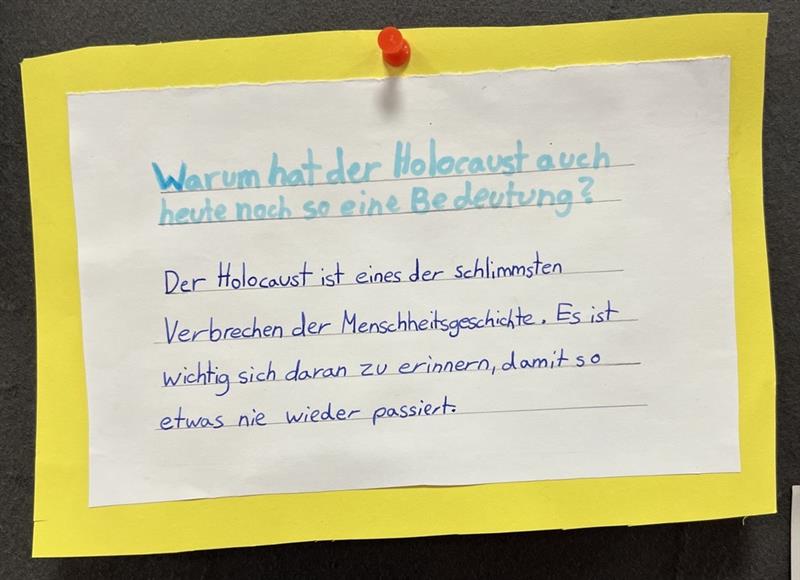 Warum hat der Holocaust auch
heute noch so eine Bedeutung?
Der Holocaust ist eines der schlimmsten
Verbrechen der Menschheitsgeschichte. Es ist
wichtig sich daran zu erinnern, damit so
etwas nie wieder passiert.